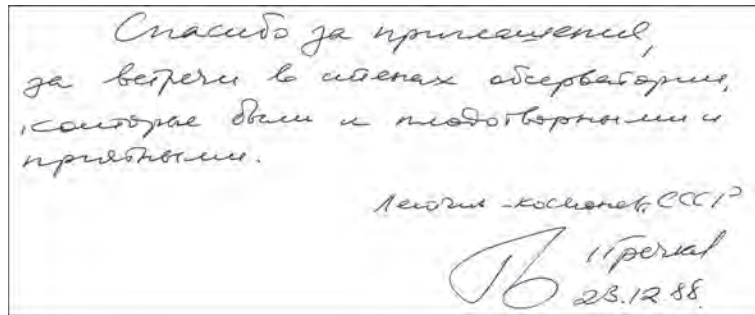 Спасибо за приглашения,
за встречи в стенах обсерватории,
которые были и плодотворными и
приятными.
Летчик-космонавт СССР
Гречко
23.12.88.